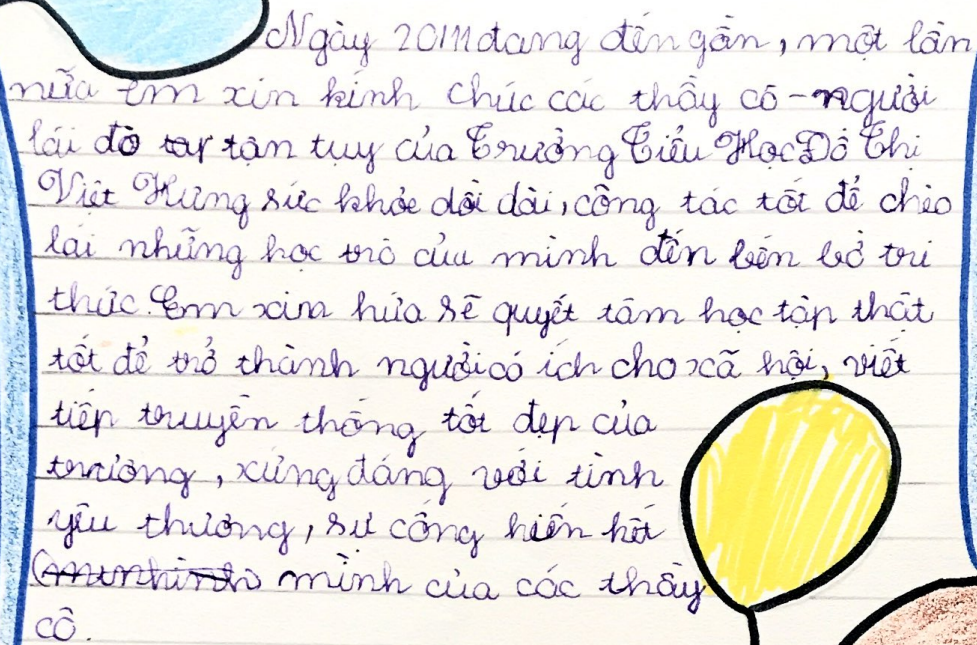 Ngày 20/11 đang đến gần, một lần
nữa em xin kính chúc các thầy cô - người
lái đò tận tụy của Trường Tiểu Học Đô Thị
Việt Hưng sức khỏe dồi dài, công tác tốt để chèo
lái những học trò của mình đến bến bờ tri
thức. Em xin hứa sẽ quyết tâm học tập thật
tốt để trở thành người có ích cho xã hội, viết
tiếp truyền thống tốt đẹp của
trường, xứng đáng với tình
yêu thương, sự cống hiến hết
mình của các thầy
cô.